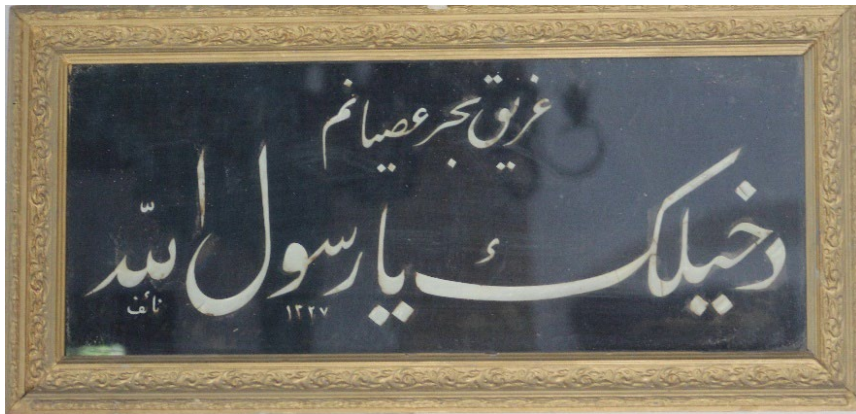 غريق بحر عصيانم
دخيلك يا رسول الله
١٣٢٧
نائف